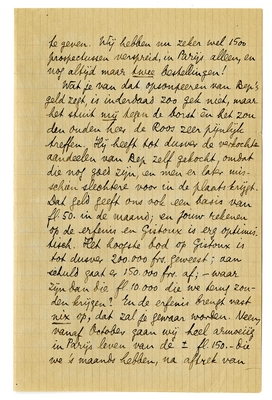 te geven. Wij hebben nu zeker wel 1500
prospectussen verspreid, in Parijs alleen, en
nog altijd maar twee bestellingen!
Wat je van dat opsoupeeren van Bep's
geld zegt, is inderdaad zoo gek niet, maar
het stuit mij tegen de borst en het zou
den ouden heer de Roos zeer pijnlijk
treffen. Hij heeft tot dusver de verkochte
aandeelen van Bep zelf gekocht, omdat
die nog goed zijn, en men er later mis-
schien slechtere voor in de plaats krijgt.
Dat geld geeft ons ook een basis van
fl. 50. in de maand; en jouw rekenen
op de erfenis en Gistoux is erg optimis-
tisch. Het hoogste bod op Gistoux is
tot dusver 200.000 frs. geweest; aan
schuld gaat er 150.000 frs. af; – waar
zijn dan die fl. 10.000 die we terug zou-
den krijgen? En de erfenis brengt vast
nix op, dat zal je gewaar worden. Neen,
vanaf October gaan wij heel armoeiig
in Parijs leven van de ± fl. 150. – die
we 's maands hebben, na aftrek van